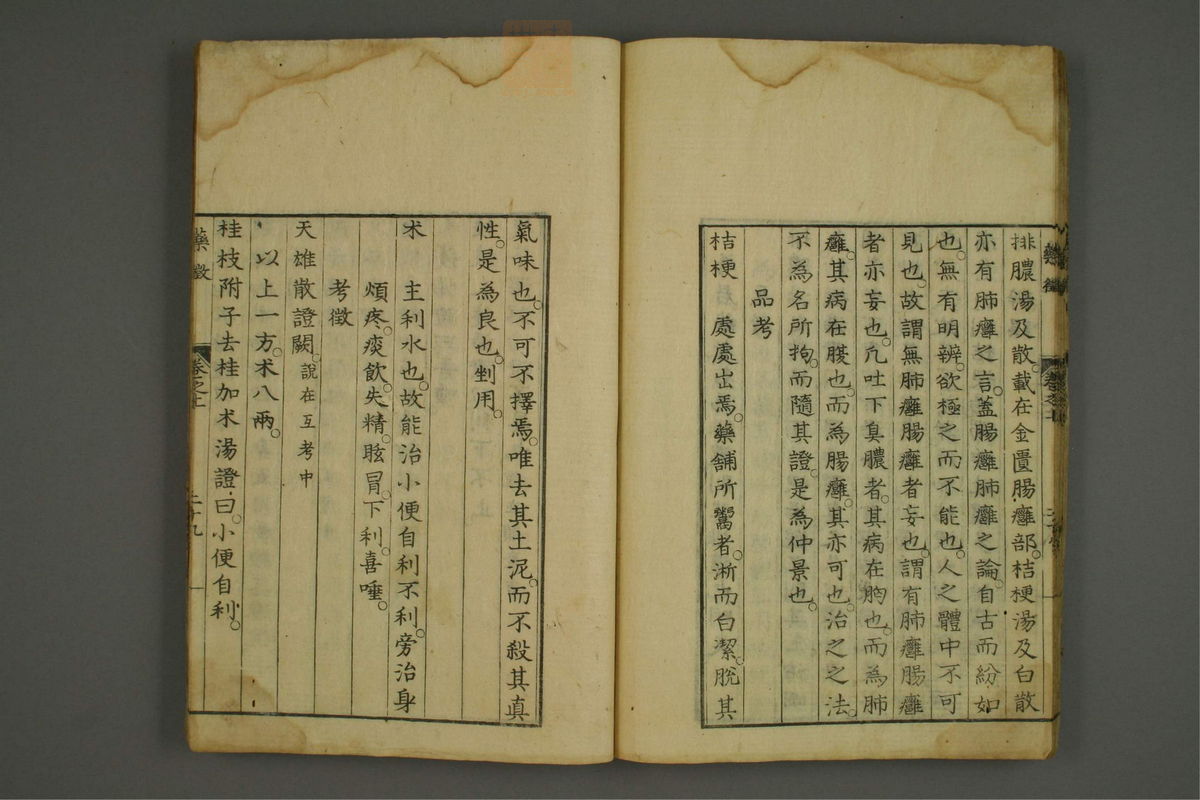 排膿湯及散。載在金匱腸癰部。桔梗湯及白散
亦有肺癰之言。蓋腸癰肺癰之論。自古而紛如
也。無有明辨。欲極之而不能也。人之體中不可
見也。故謂無肺癰腸癰者妄也。謂有肺癰腸癰
者亦妄也。凢吐下臭膿者。其病在胸也。而為肺
癰。其病在腹也。而為腸癰。其亦可也。治之之法。
不為名所拘。而隨其證。是為仲景也。
品考
桔梗 處處出焉。藥舖所鬻者。淅而白潔。脫其
氣味也。不可不擇焉。唯去其土泥。而不殺其真
性。是為良也。剉用。
朮 主利水也。故能治小便自利不利。旁治身
煩疼。痰飲。失精。眩冒。下利。喜唾。
考徵
天雄散證闕。說在互考中
以上一方。朮八兩。
桂枝附子去桂加朮湯證曰。小便自利。
藥徵